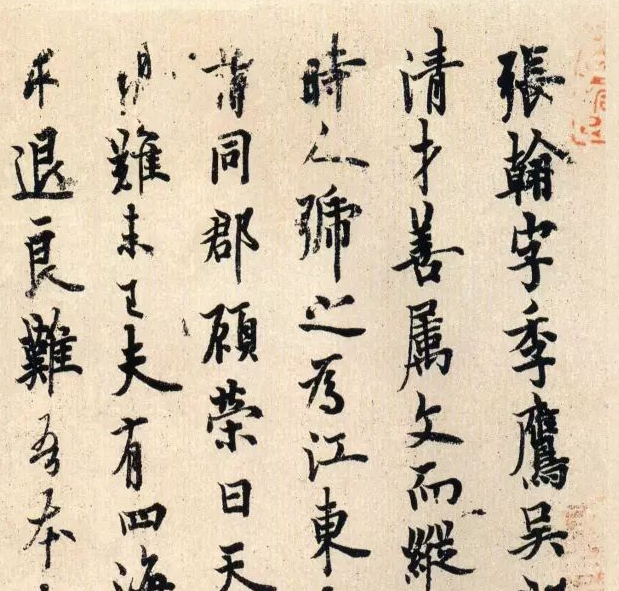 張翰字季鷹吳
清才善屬文而縱
時人號之為江東
謂同郡顧榮曰天
難未已夫有四海
求退良難吾本